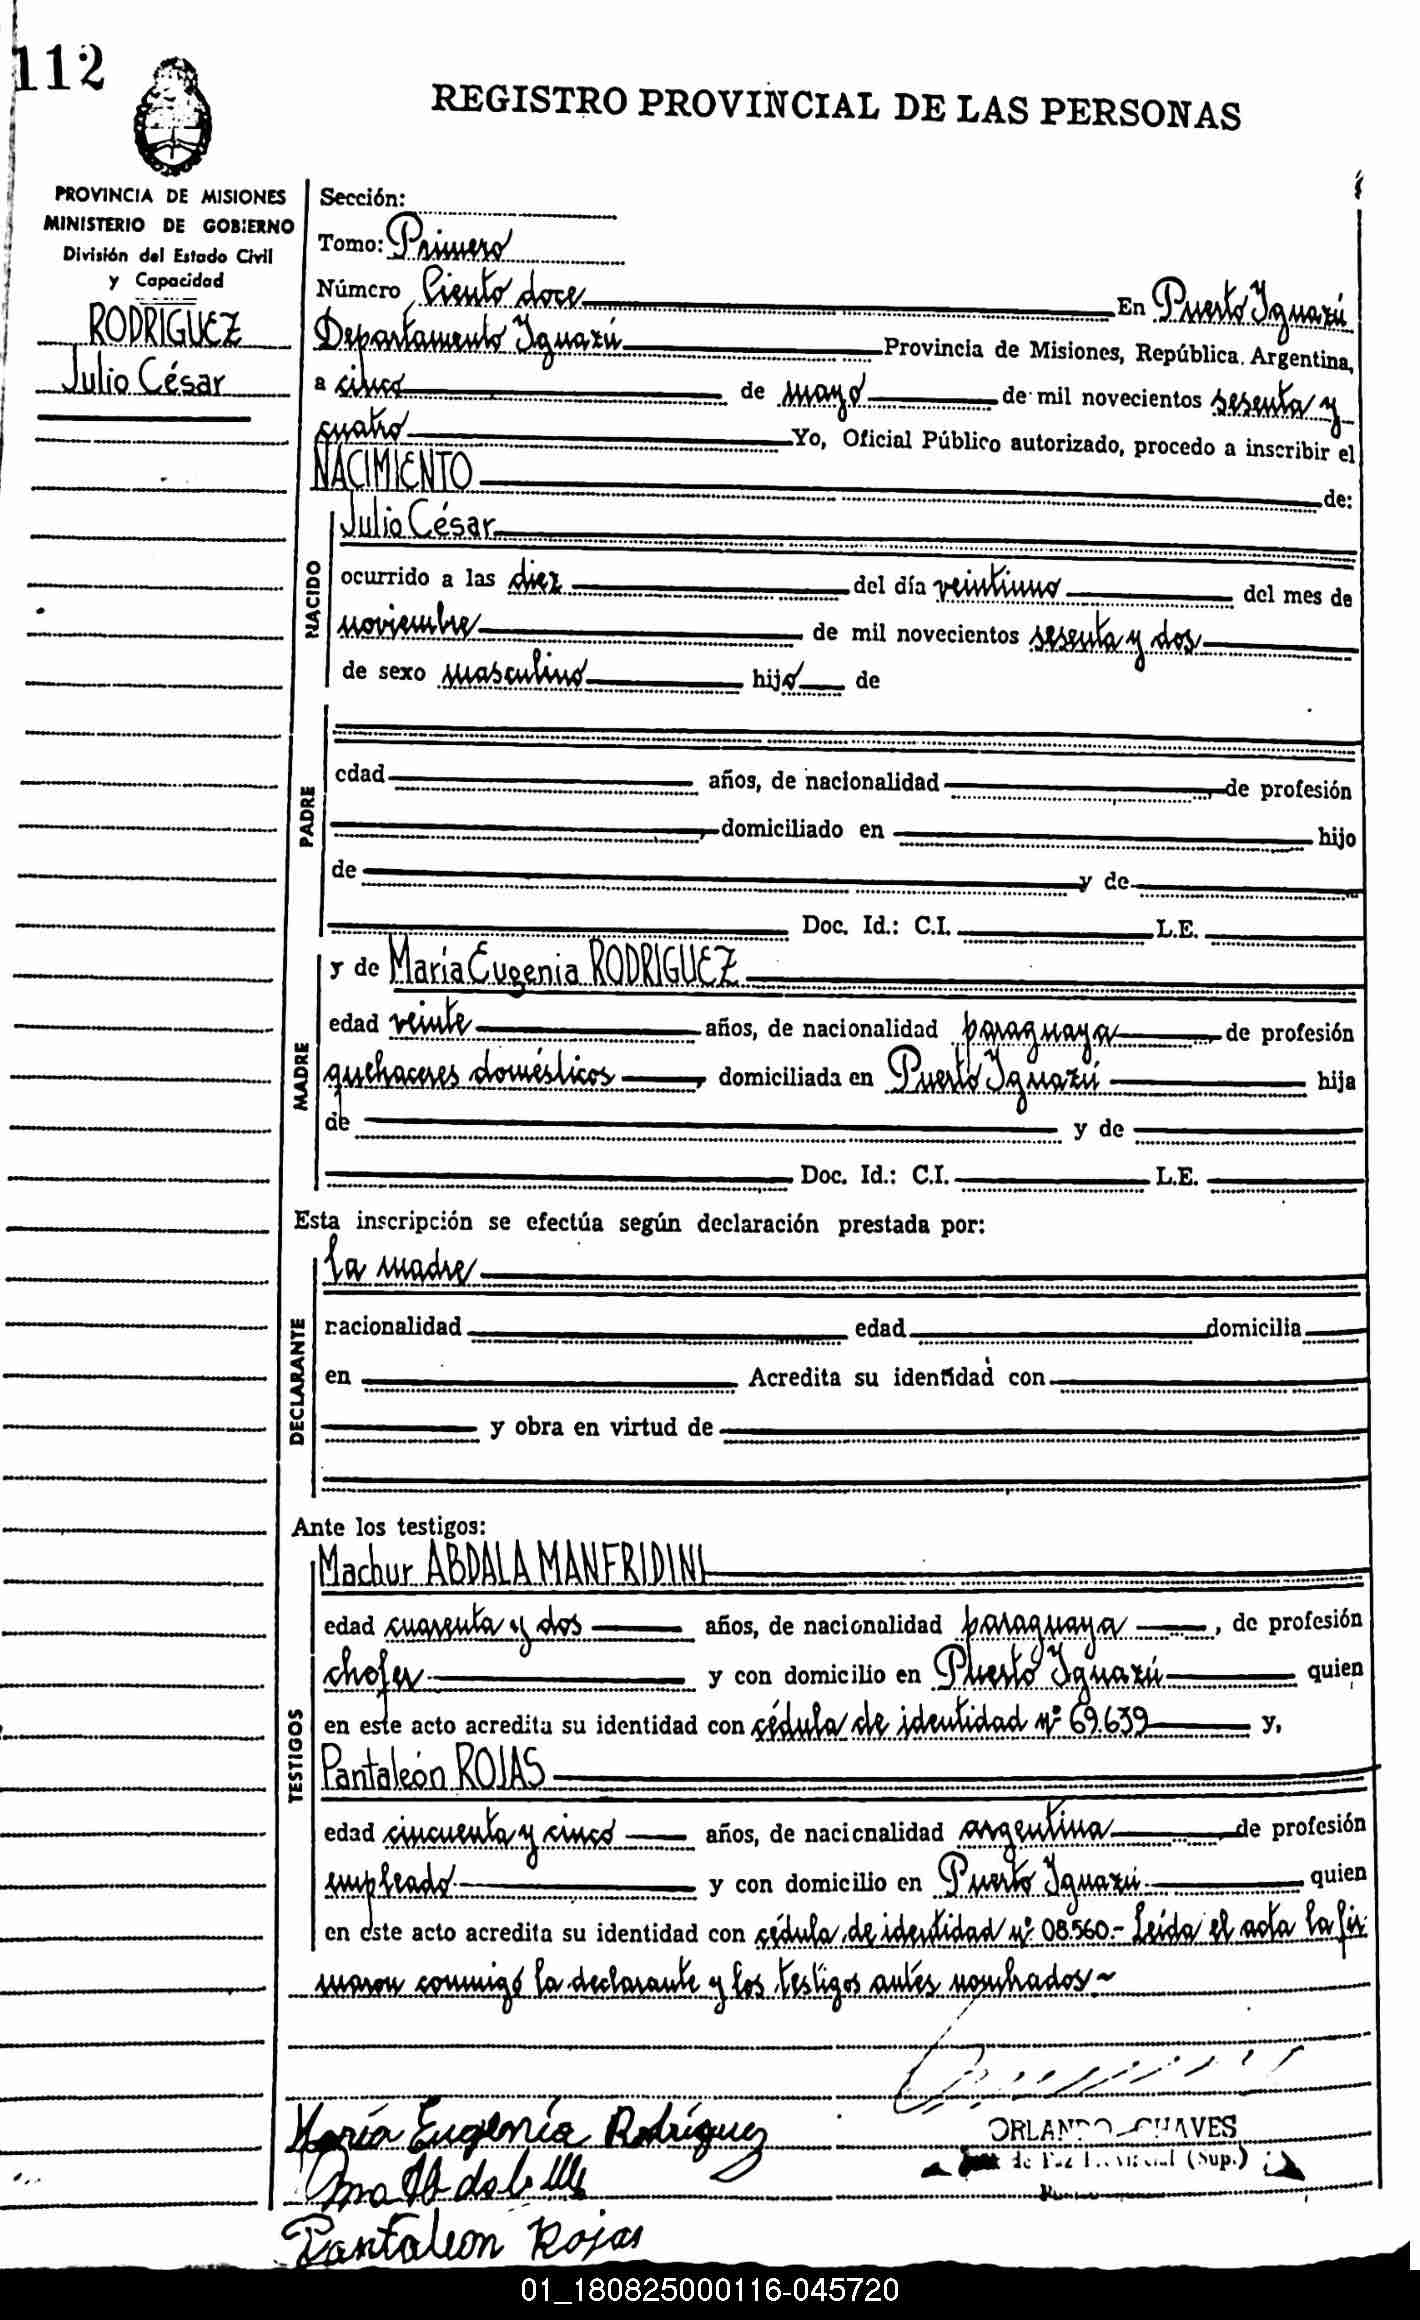 112
REGISTRO PROVINCIAL DE LAS PERSONAS
PROVINCIA DE MISIONES
MINISTERIO DE GOBIERNO
División del Estado Civil
y Capacidad
RODRIGUEZ
Julio César
Sección:
Tomo: Primero
Número Ciento doce En Puerto Iguazú
Departamento Iguazú Provincia de Misiones, República. Argentina,
a cinco de mayo de mil novecientos sesenta y
cuatro Yo, Oficial Público autorizado, procedo a inscribir el
NACIMIENTO de:
NACIDO
Julio César
ocurrido a las diez del día veintiuno del mes de
noviembre de mil novecientos sesenta y dos
de sexo masculino hijo de
PADRE
edad años, de nacionalidad , de profesión
, domiciliado en hijo
de y de
Doc. Id.: C.I. L.E.
MADRE
y de María Eugenia RODRIGUEZ
edad veinte años, de nacionalidad paraguaya , de profesión
quehaceres domésticos , domiciliada en Puerto Iguazú hija
de y de
Doc. Id.: C.I. L.E.
Esta inscripción se efectúa según declaración prestada por:
DECLARANTE
La madre
nacionalidad edad domicilia
en Acredita su identidad con
y obra en virtud de
Ante los testigos:
TESTIGOS
Machur ABDALA MANFRIDINI
edad cuarenta y dos años, de nacionalidad paraguaya , de profesión
chofer y con domicilio en Puerto Iguazú quien
en este acto acredita su identidad con cédula de identidad nº 69.639 y,
Pantaleón ROJAS
edad cincuenta y cinco años, de nacionalidad argentina , de profesión
empleado y con domicilio en Puerto Iguazú quien
en este acto acredita su identidad con cédula de identidad nº 08.560.- Leída el acta la fir
maron conmigo la declarante y los testigos antes nombrados~
María Eugenia Rodríguez
ORLANDO CHAVES
de Paz (Sup.)
Pantaleon Rojas
01_180825000116-045720